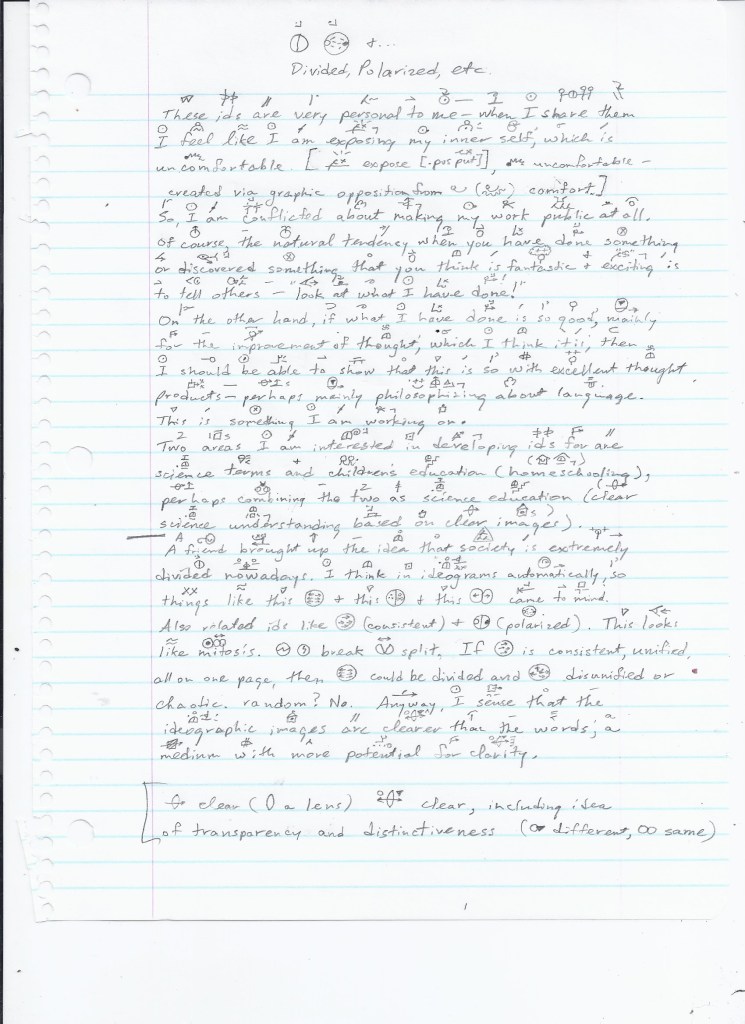 +...
Divided, Polarized, etc.
These ids are very personal to me – when I share them
I feel like I am exposing my inner self, which is
uncomfortable. [ expose [-pos put], uncomfortable –
created via graphic opposition from a ( ) comfort.]
So, I am conflicted about making my work public at all.
Of course, the natural tendency when you have done something
or discovered something that you think is fantastic + exciting is
to tell others – "look at what I have done!"
On the other hand, if what I have done is so good, mainly
for the improvement of thought, which I think it is, then
I should be able to show that this is so with excellent thought
products – perhaps mainly philosophizing about language.
This is something I am working on.
Two areas I am interested in developing ids for are
science terms and children's education (homeschooling),
perhaps combining the two as science education (clear
science understanding based on clear images).
A friend brought up the idea that society is extremely
divided nowadays. I think in ideograms automatically, so
things like this + this + this came to mind.
Also related ids like (consistent) + (polarized). This looks
like mitosis. break split. If is consistent, unified,
all on one page, then could be divided and disunified or
chaotic. random? No. Anyway, I sense that the
ideographic images are clearer than the words; a
medium with more potential for clarity.
clear ( a lens) clear, including idea
of transparency and distinctiveness ( different, same)
1